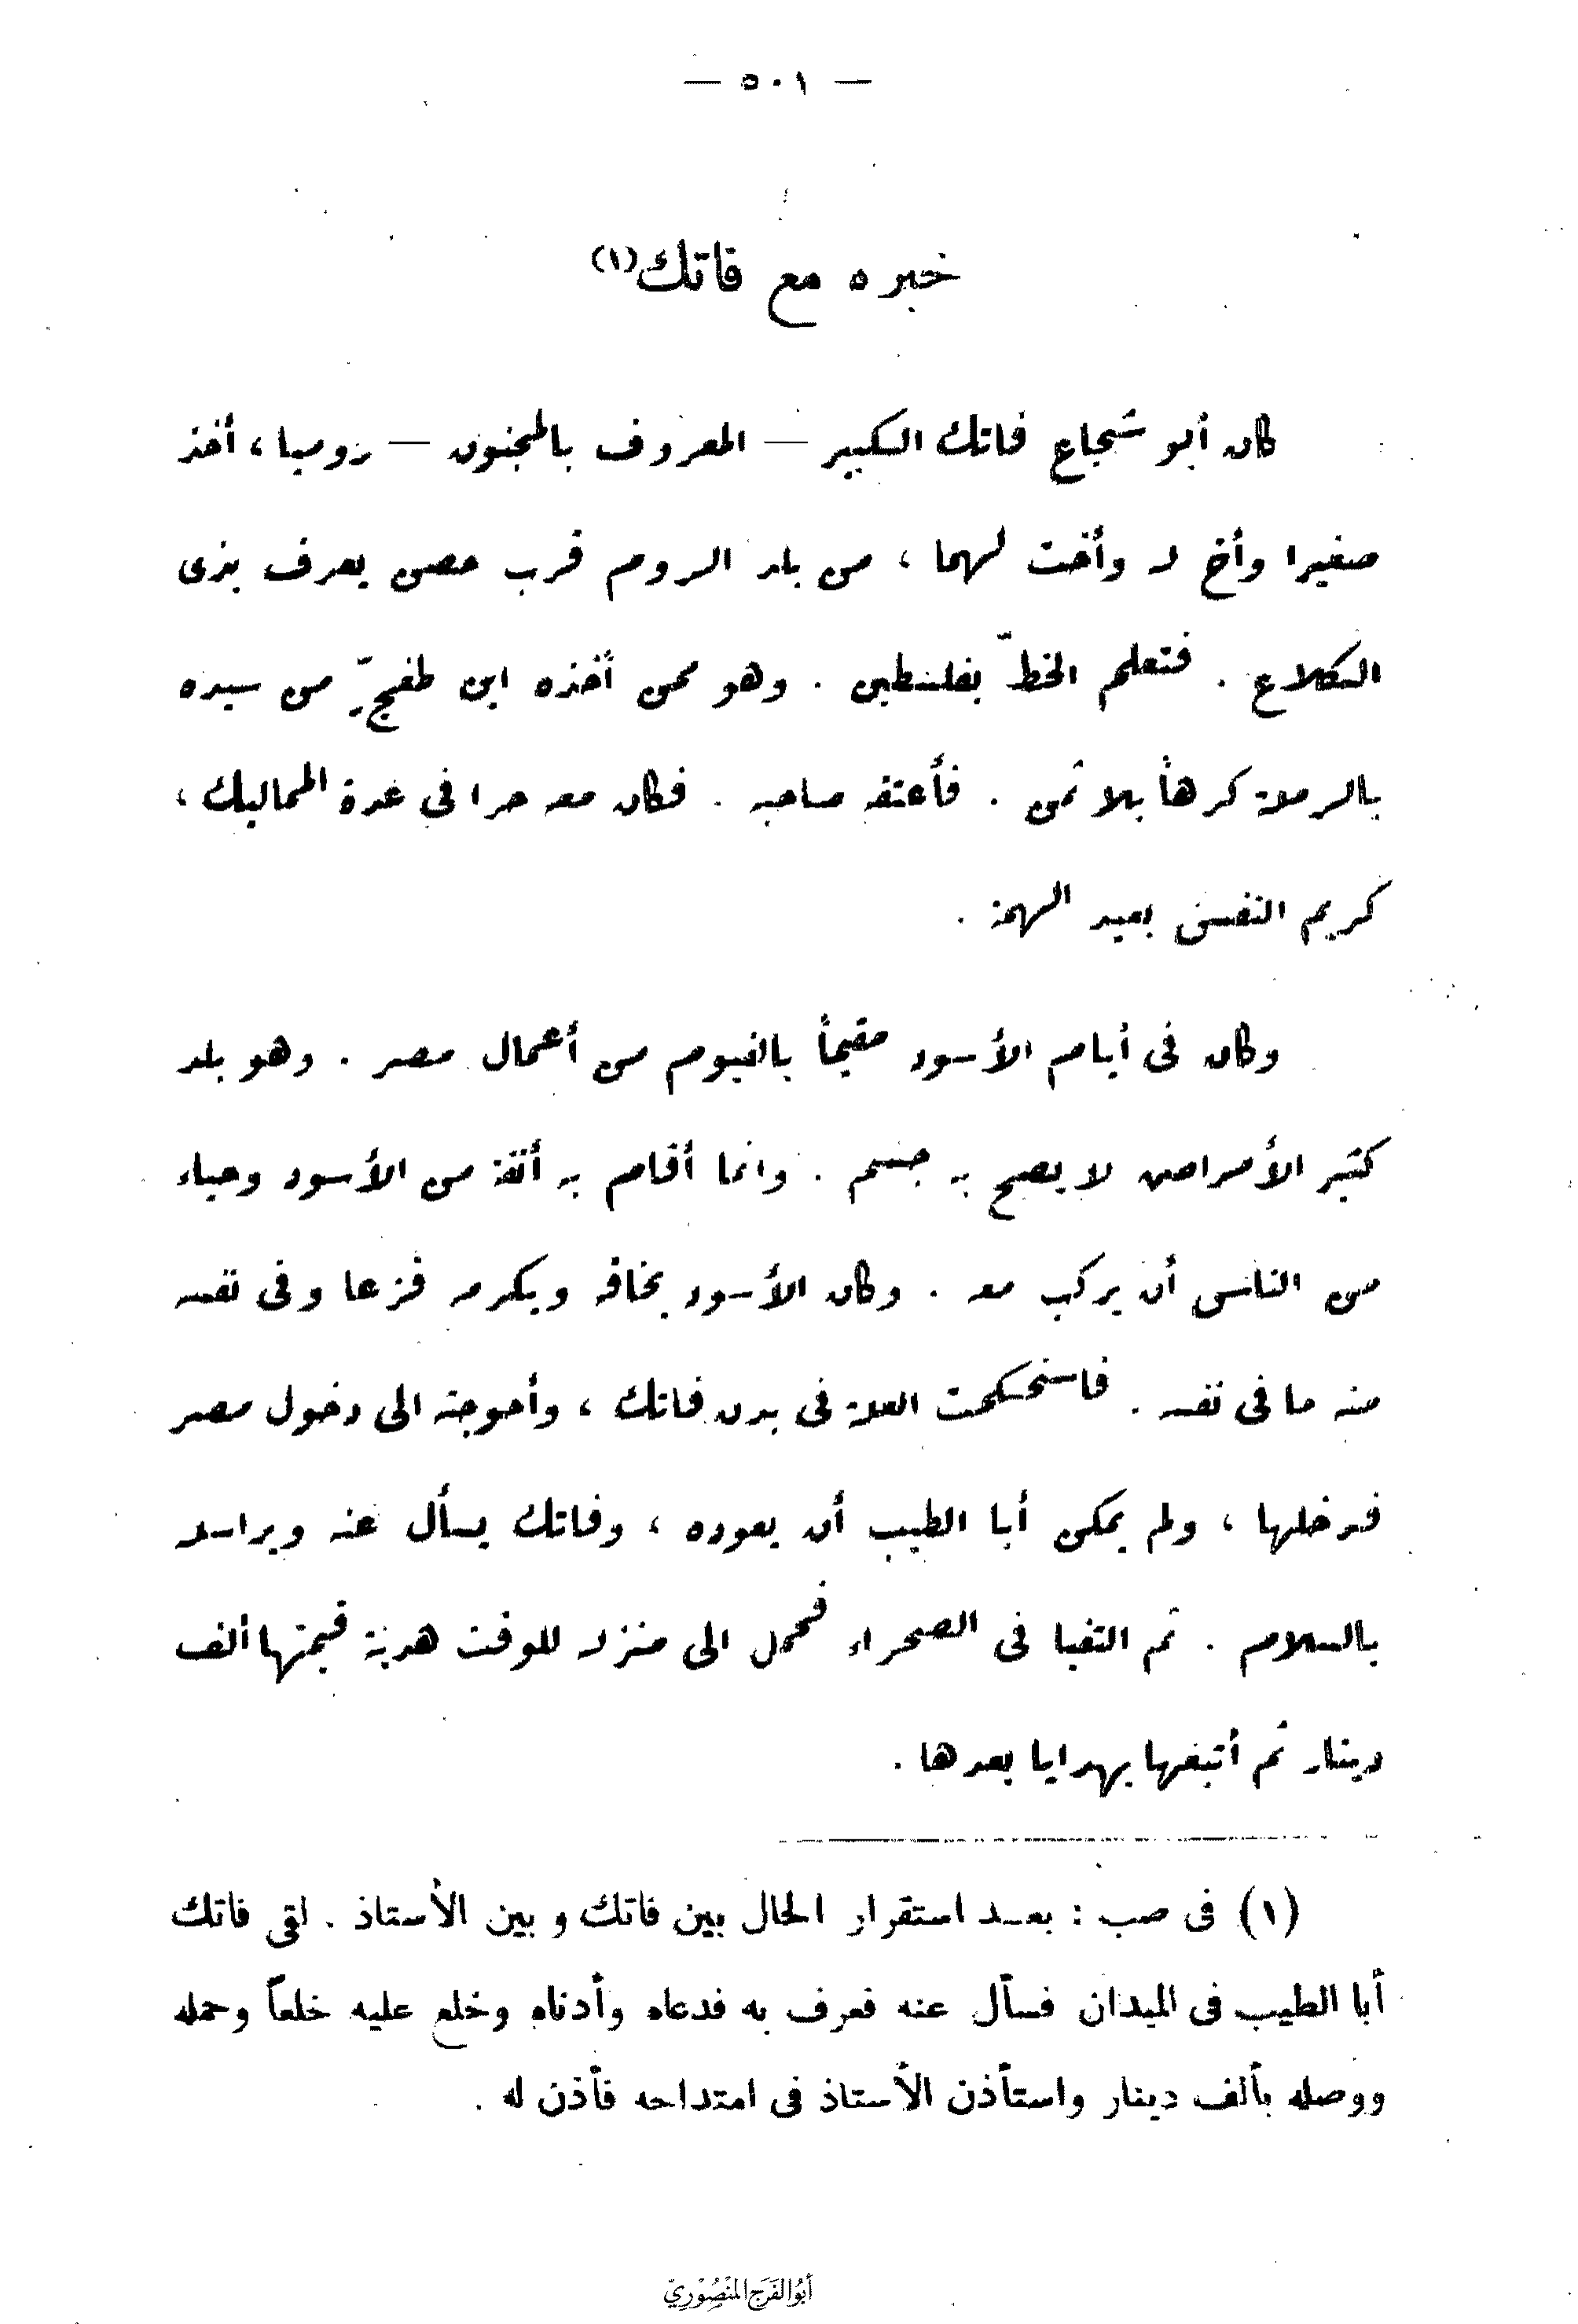 — ٥٠١ —
خبره مع فاتك(١)
كان أبو شجاع فاتك الكبير — المعروف بالمجنون — روميا ، أخذ
صغيرا وأخ له وأخت لهما ، من بلد الروم قرب حصن يعرف بذى
الكلاع . فتعلم الخطّ بفلسطين . وهو ممن أخذه ابن طغجّ من سيده
بالرملة كرهاً بلا ثمن . فأعتقه صاحبه . فكان معه حرا فى عدة المماليك ،
كريم النفس بعيد الهمة .
وكان فى أيام الأسود مقيماً بالفيوم من أعمال مصر . وهو بلد
كثير الأمراض لا يصح به جسم . وانما أقام به أنفة من الأسود وحياء
من الناس أن يركب معه . وكان الأسود يخافه ويكرمه فزعا وفى نفسه
منه ما فى نفسه . فاستحكمت العلة فى بدن فاتك ، وأحوجته الى دخول مصر
فدخلها ، ولم يمكن أبا الطيب أن يعوده ، وفاتك يسأل عنه ويراسله
بالسلام . ثم التقيا فى الصحراء فحمل الى منزله للوقت هدية قيمتها ألف
دينار ثم أتبعها بهدايا بعدها .
(١) فى صب : بعد استقرار الحال بين فاتك وبين الأستاذ . لقى فاتك
أبا الطيب فى الميدان فسأل عنه فعرف به فدعاه وأدناه وخلع عليه خلعاً وحمله
ووصله بألف دينار واستأذن الأستاذ فى امتداحه فأذن له .
أبُو الفَرَج المَنْصُوْرِيّ